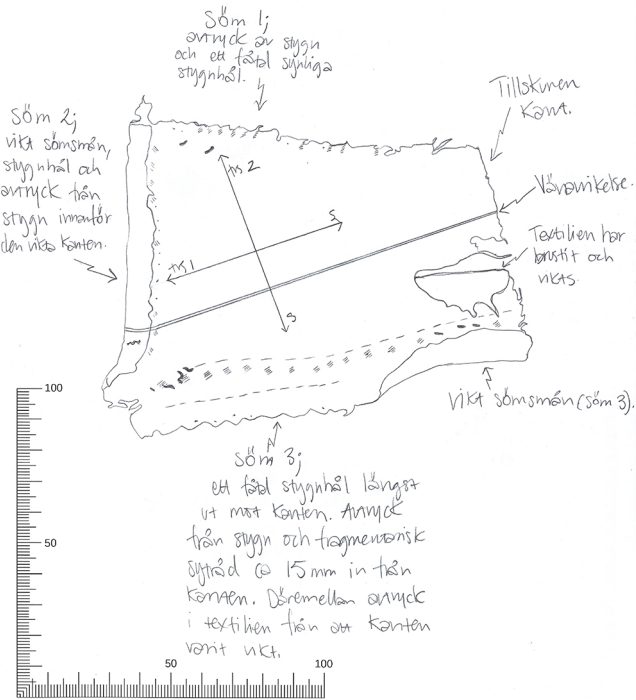 Söm 1;
avtryck av stygn
och ett fåtal synliga
stygnhål.
Söm 2;
vikt sömsmån,
stygnhål och
avtryck från
stygn innanför
den vikta kanten.
Tillskuren
kant.
Vävavvikelse.
Textilien har
brustit och
vikts.
trs 2
S
trs 1
S
vikt sömsmån (söm 3).
Söm 3;
ett fåtal stygnhål längst
ut mot kanten. Avtryck
från stygn och fragmentarisk
sytråd ca 15 mm in från
kanten. Däremellan avtryck
i textilien från att kanten
varit vikt.
100
50
50
100